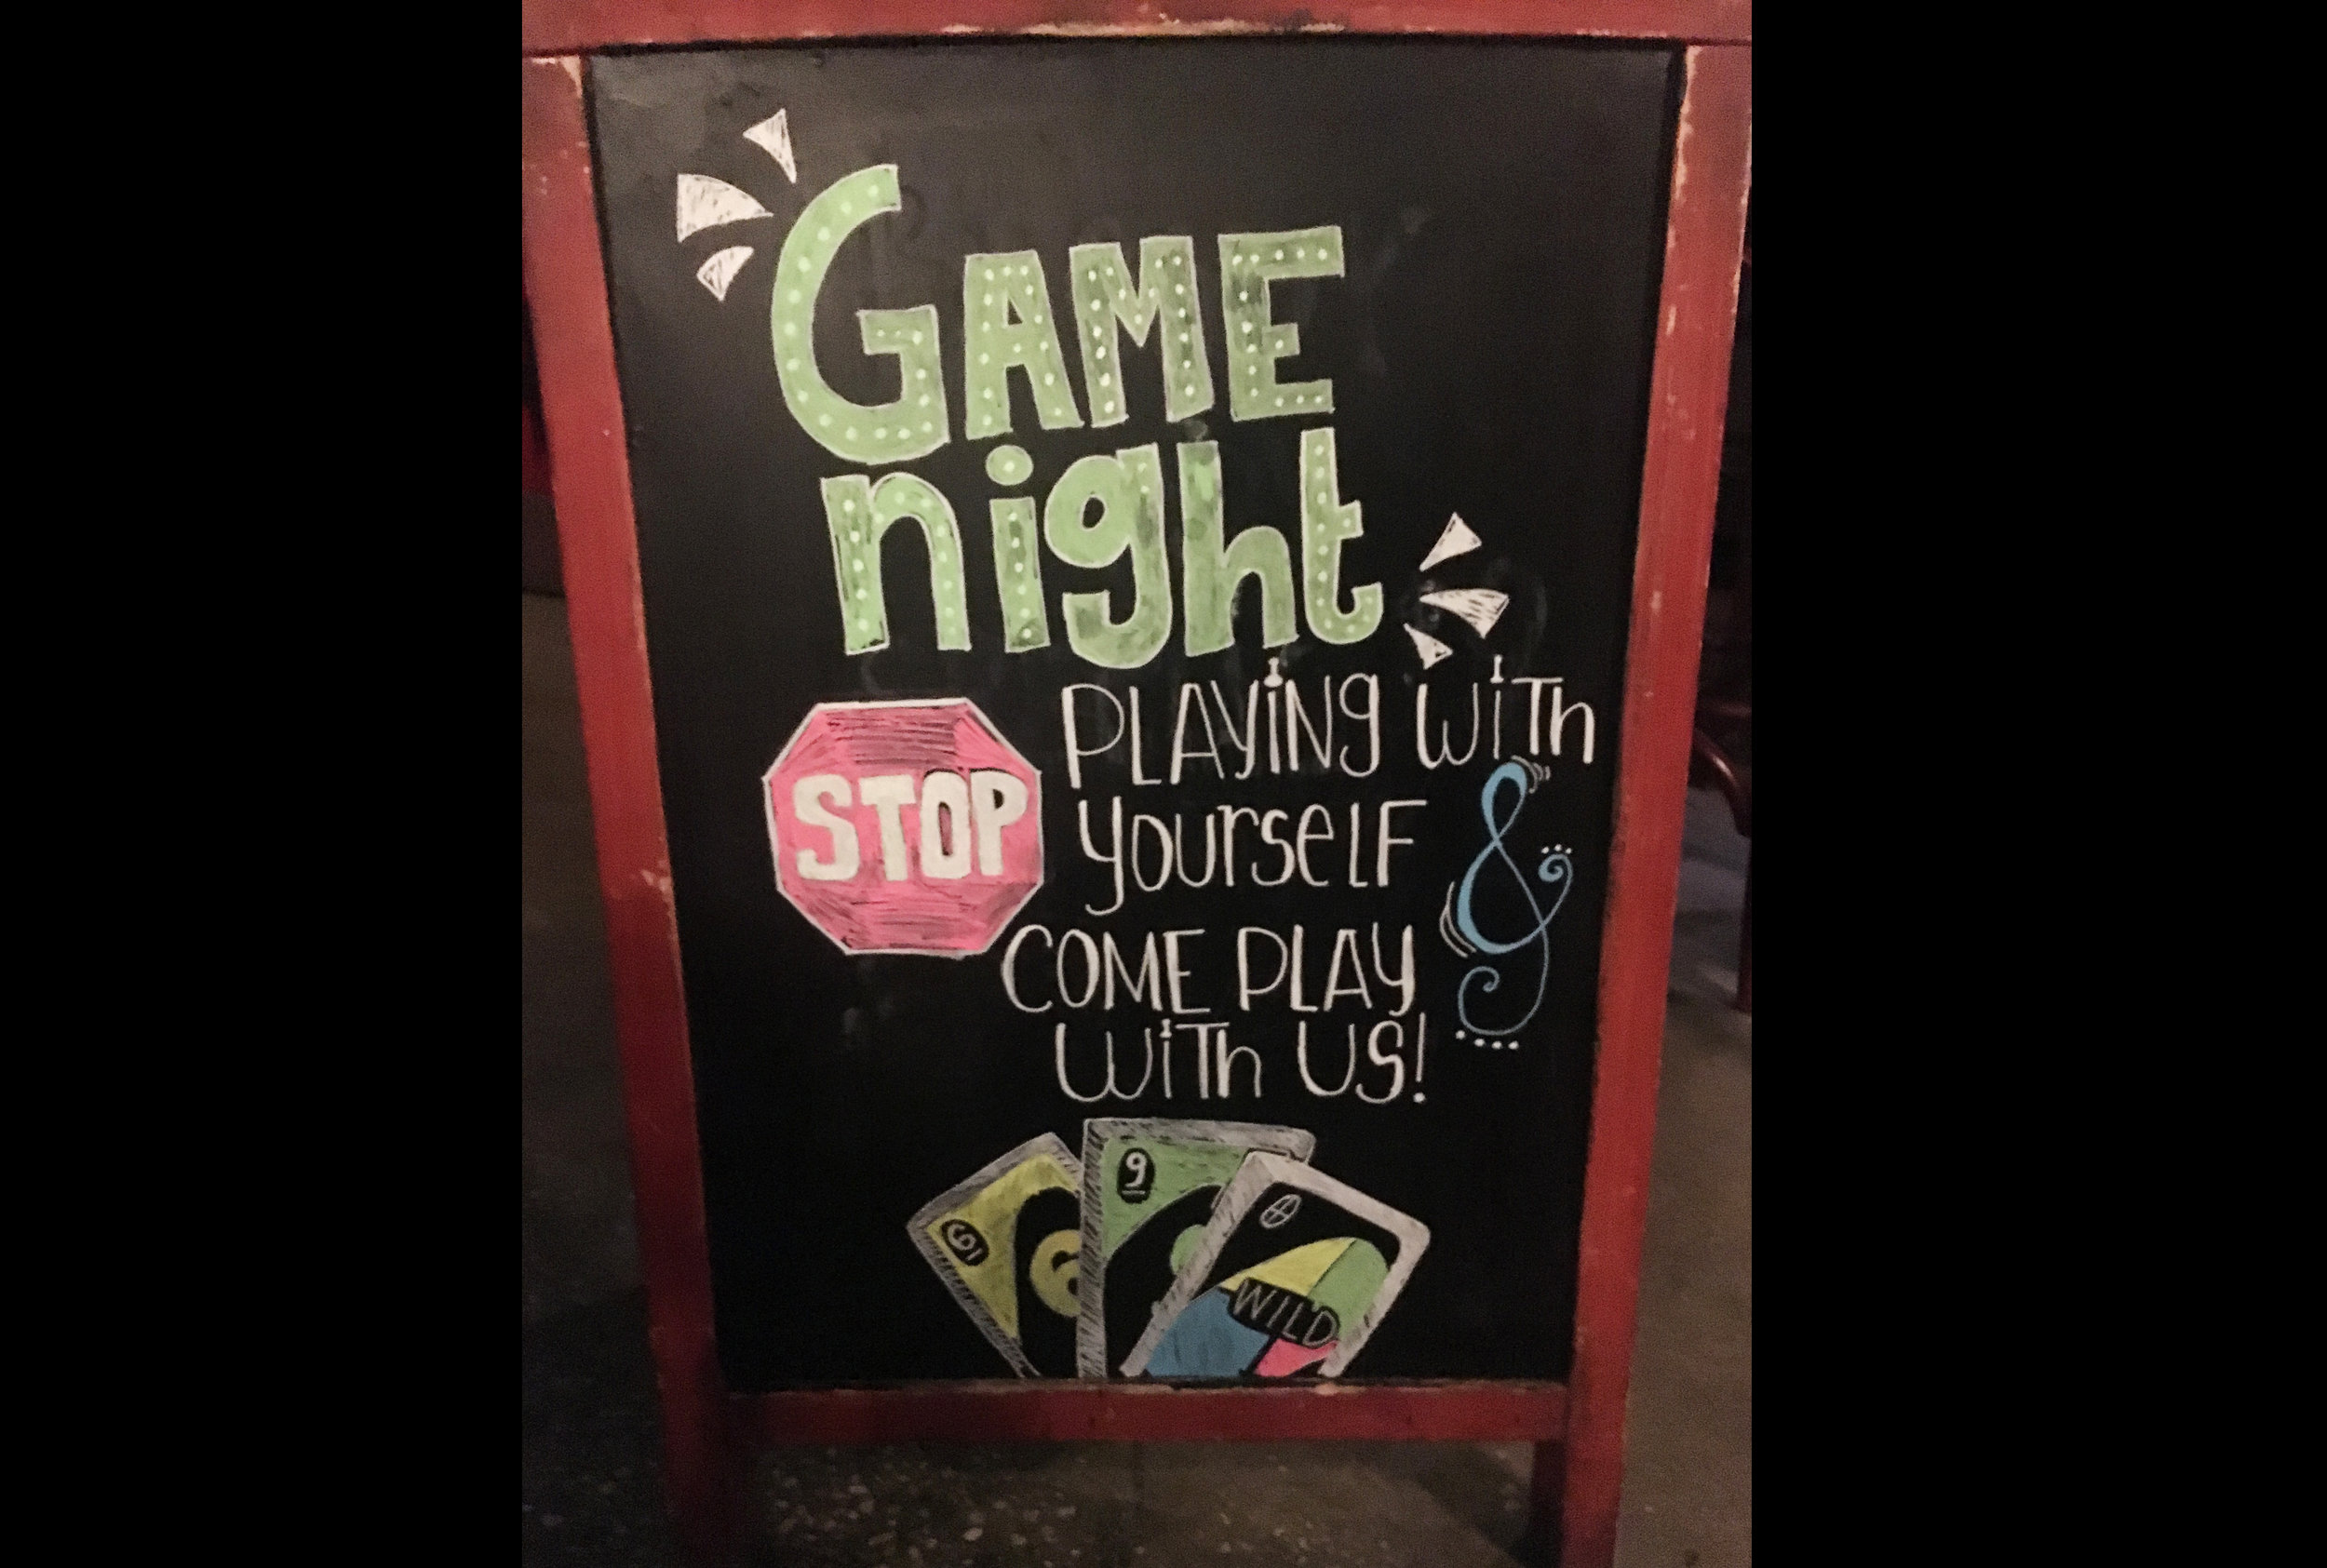 GAME
night
STOP PLAYiNg WiTh
yourseLF &
COME PLAY
WiTh US!
6 6
9
WILD